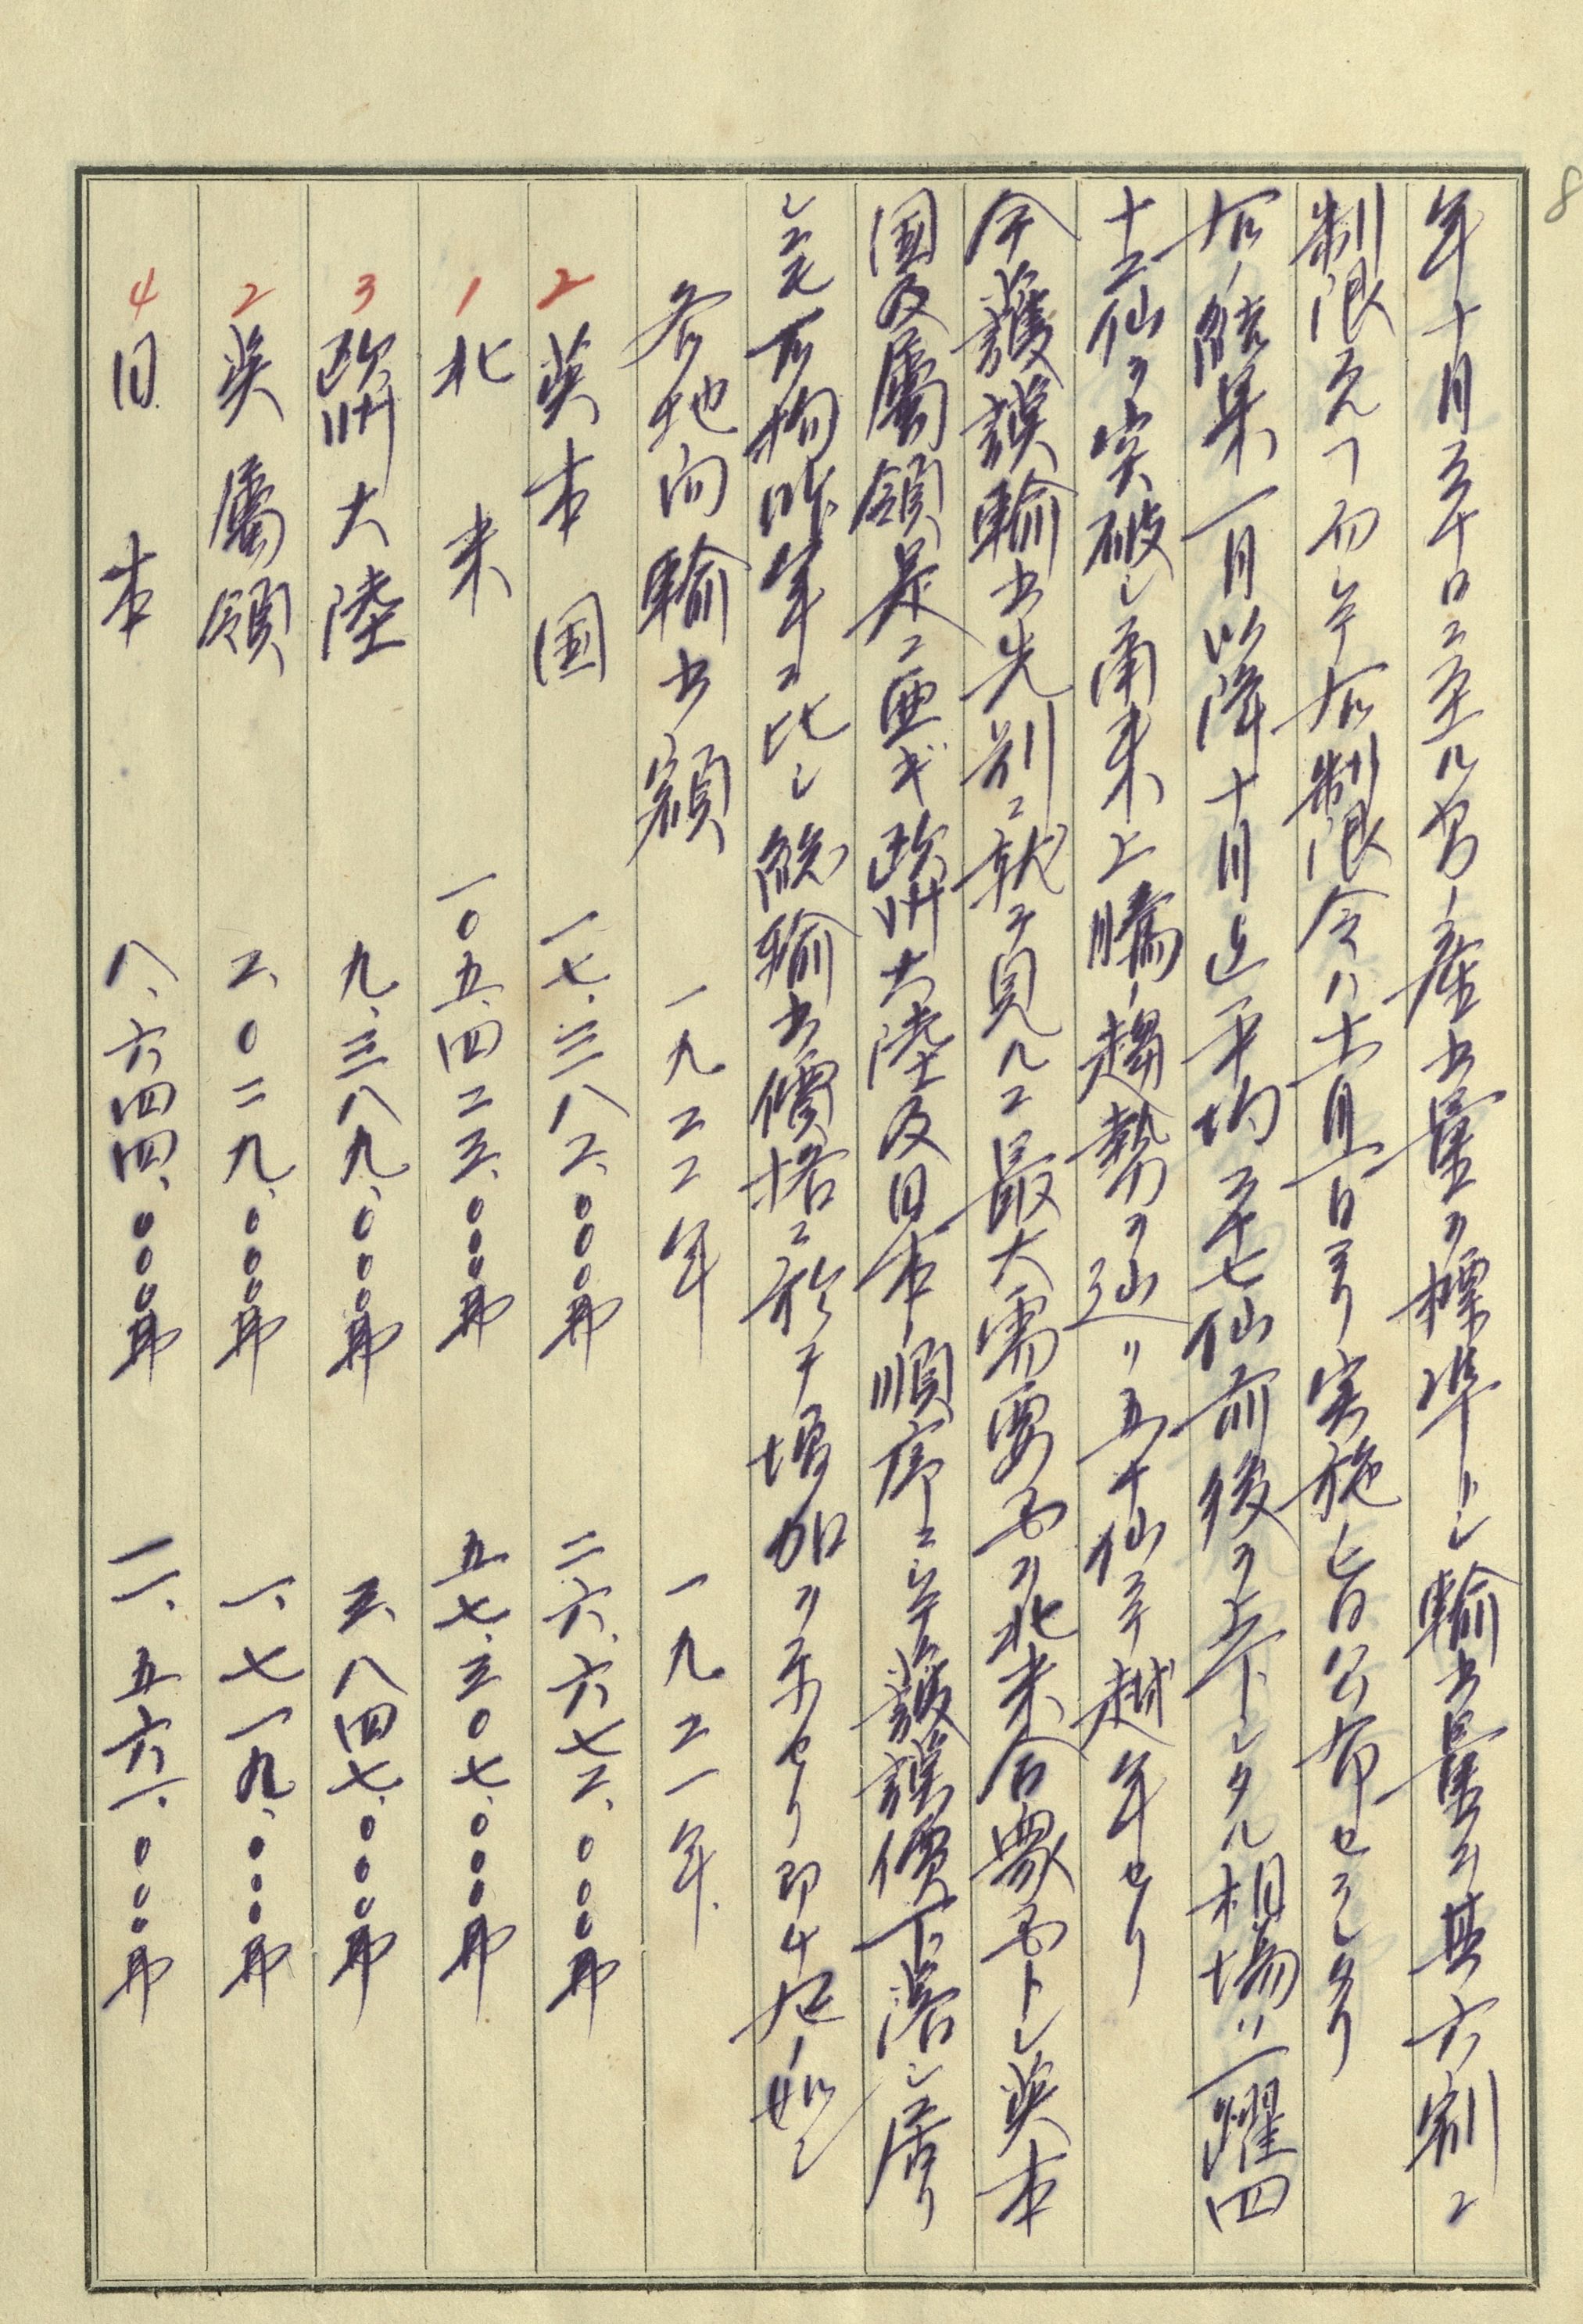 8
年十月三十日ニ至ル間ノ産出量ヲ標準トシ輸出量ヲ其六割ニ
制限スヿナシテ右制限令ハ十一月一日ヨリ実施ノ旨公布セラレタリ
右ノ結果一月以降十月迄平均二十七仙前後ヲ上下シタル相場ハ一躍四
十二仙ヲ突破シ爾来上騰ノ趨勢ヲ辿リ五十仙ニテ越年セリ
今護謨輸出先別ニ就テ見ルニ最大需要者ヲ北米合衆国トシ英本
国及屬領是ニ亜ギ欧洲大陸及日本ノ順序ニシテ護謨價下落シ居リ
シニモ不拘昨年ニ比シ総輸出價格ニ於テ増加ヲ示セリ即チ左ノ如シ
各地向輸出額 一九二二年 一九二一年
2 英本国 一七、三八二、〇〇〇弗 二六、六七二、〇〇〇弗
1 北米 一〇五、四二三、〇〇〇弗 五七、三〇七、〇〇〇弗
3 欧洲大陸 九、三八九、〇〇〇弗 三、八四七、〇〇〇弗
2 英屬領 二、〇二九、〇〇〇弗 一、七一九、〇〇〇弗
4 日本 八、六四四、〇〇〇弗 一一、五六一、〇〇〇弗